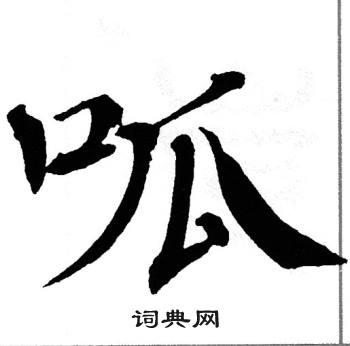 呱
词典网